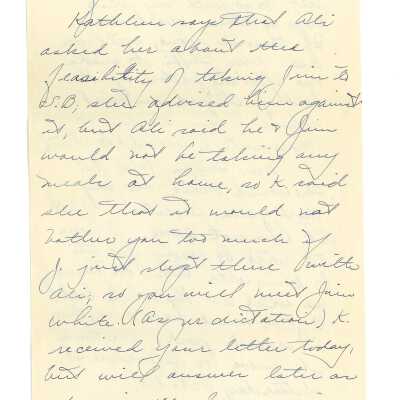 Kathleen says that Ali
asked her about the
feasibility of taking Jim to
S.B; she advised him against
it, but Ali said he & Jim
would not be taking any
meals at home, so K. said
she that it would not
bother you too much if
J. just slept there with
Ali; so you will meet Jim
White. (As per dictation) K.
received your letter today,
but will answer later as